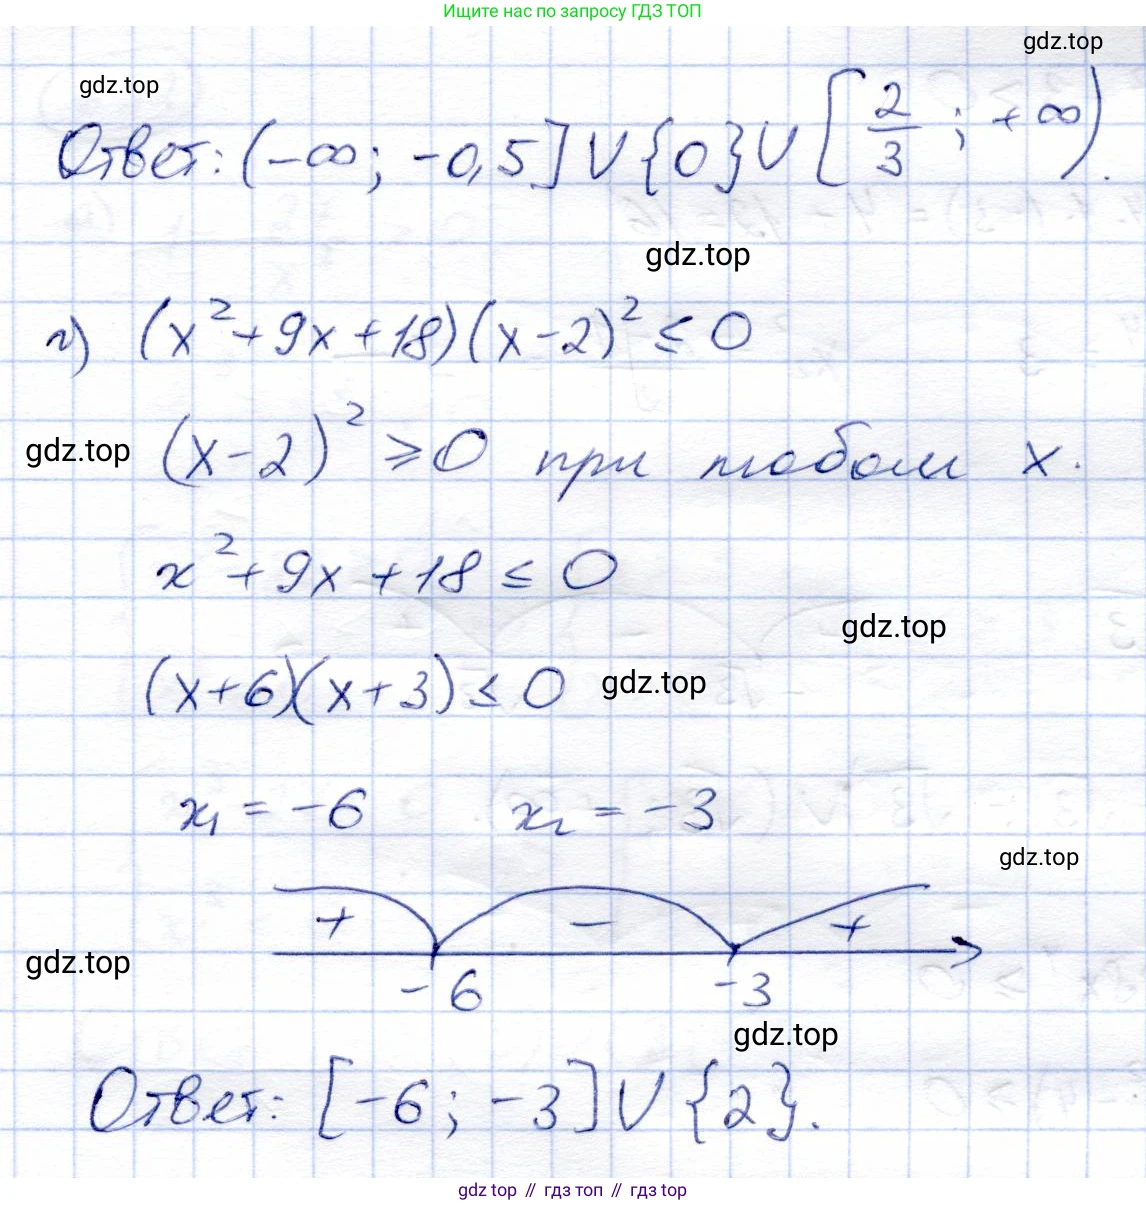 Ищите нас по запросу ГДЗ ТОП
gdz.top
gdz.top
Ответ: (-∞; -0,5] ∪ {0} ∪ [2/3; +∞).
gdz.top
г) (x²+9x+18)(x-2)² ≤ 0
gdz.top (x-2)² ≥ 0 при любом x.
x²+9x+18 ≤ 0
gdz.top
(x+6)(x+3) ≤ 0 gdz.top
x₁ = -6 x₂ = -3
gdz.top
+ - +
gdz.top
-6 -3
gdz.top
Ответ: [-6; -3] ∪ {2}.
gdz top // гдз топ // gdz top